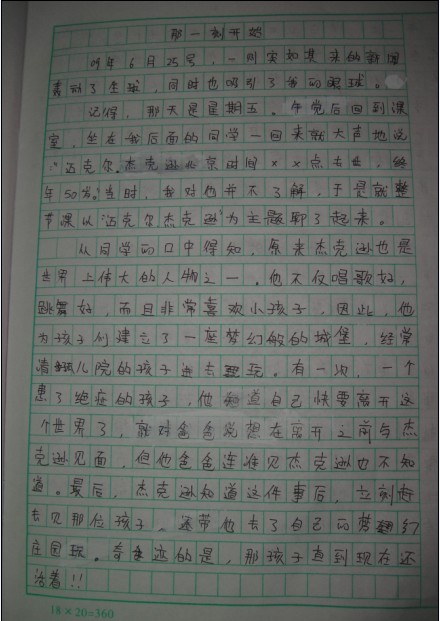 那一刻开始
09年6月25号，一则突如其来的新闻
轰动了全球，同时也吸引了我的眼球。
记得，那天是星期五。午觉后回到课
室，坐在我后面的同学一回来就大声地说
：“迈克尔.杰克逊北京时间××点去世，终
年50岁。”当时，我对他并不了解，于是就整
节课以“迈克尔杰克逊”为主题聊了起来。
从同学的口中得知，原来杰克逊也是
世界上伟大的人物之一。他不仅唱歌好，
跳舞好，而且非常喜欢小孩子，因此，他
为孩子们建立了一座梦幻般的城堡，经常
请孤儿院的孩子进去玩。有一次，一个
患了绝症的孩子，他知道自己快要离开这
个世界了，就对爸爸说想在离开之前与杰
克逊见面，但他爸爸连谁见杰克逊也不知
道。最后，杰克逊知道这件事后，立刻赶
去见那位孩子。还带他去了自己的梦幻
庄园玩。奇迹的是，那孩子直到现在还
活着！！
18×20=360